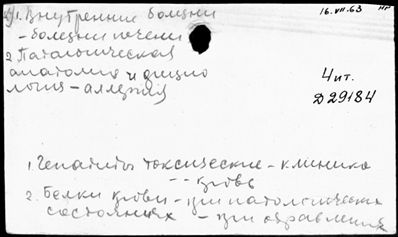 1. Внутренние болезни
16.VII.63
- болезни печени
2. Патологическая
анатомия и физио
логия - аллергия
4 ит.
Д29184
1. Гепатиты токсические - клиника
- - кровь
2. Белки крови - при патологических
состояниях - при отравлениях